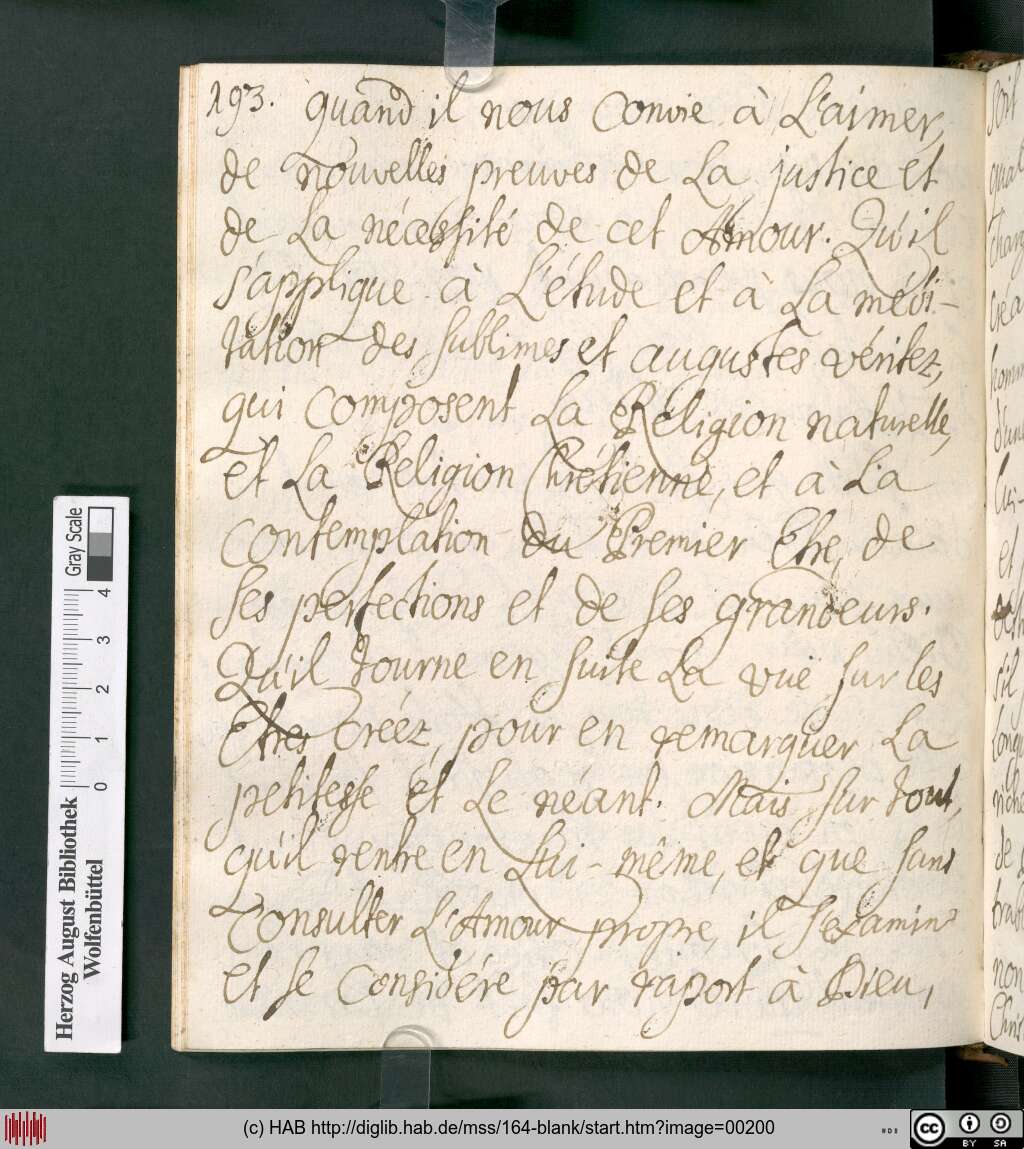 193. quand il nous convie à L'aimer,
de nouvelles preuves de La justice et
de La nécessité de cet Amour. Qu'il
s'applique à L'étude et à La médi-
tation des sublimes et augustes véritez,
qui composent La Religion naturelle,
et La Religion Chrétienne, et à La
Contemplation du Premier Etre, de
ses perfections et de ses grandeurs.
Qu'il tourne en suite La vuë sur les
Etres créez, pour en remarquer La
petitesse et Le néant. Mais sur tout,
qu'il rentre en Lui-même, et que sans
Consulter L'Amour propre, il s'examine
et se Considére par raport à Dieu,
soit
et
s'il
de
non
Gray Scale
4
3
2
1
0
Herzog August Bibliothek
Wolfenbüttel
(c) HAB http://diglib.hab.de/mss/164-blank/start.htm?image=00200
cc
BY SA